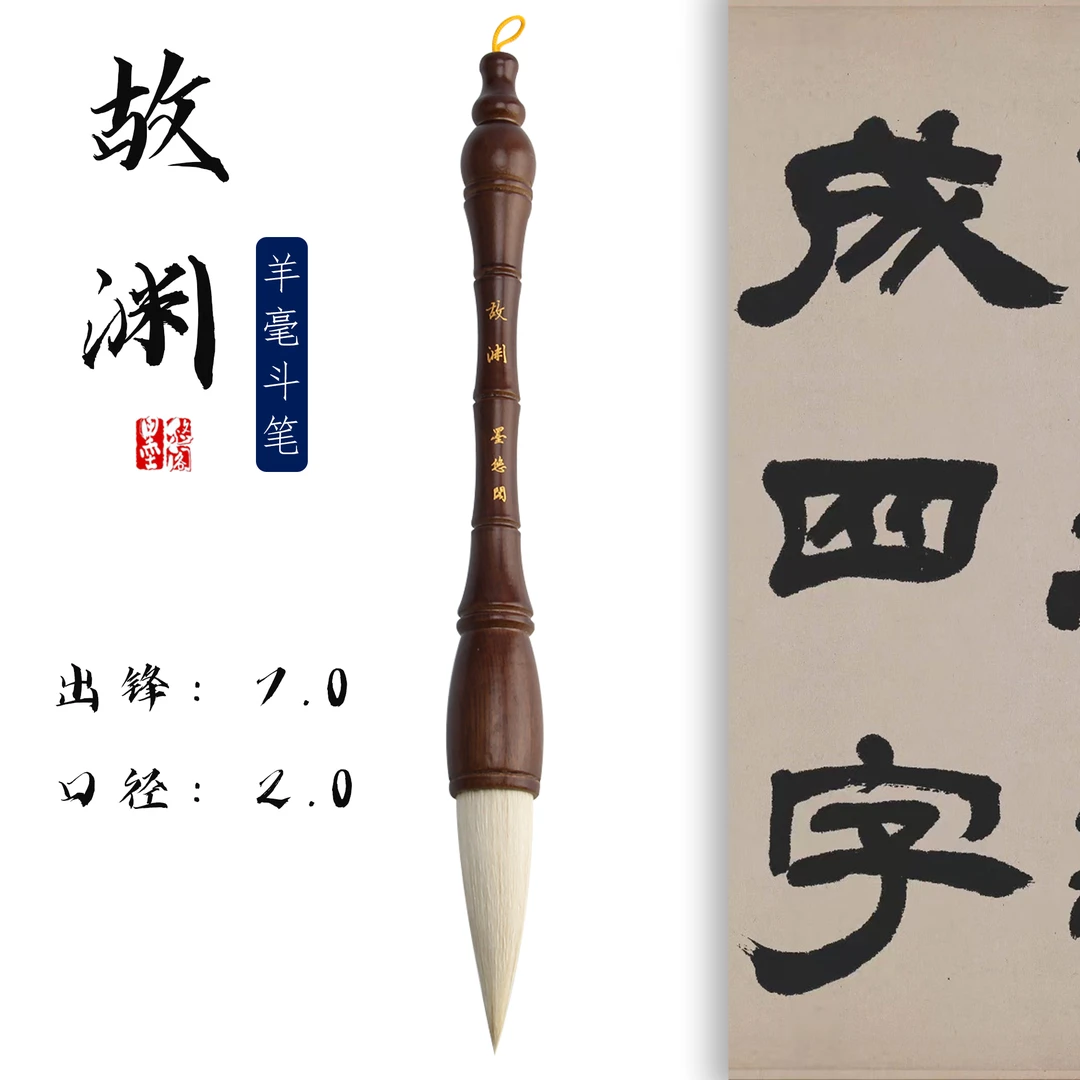 故渊
羊毫斗笔
出锋： 7.0
口径： 2.0
故渊
墨悠阁
成四字